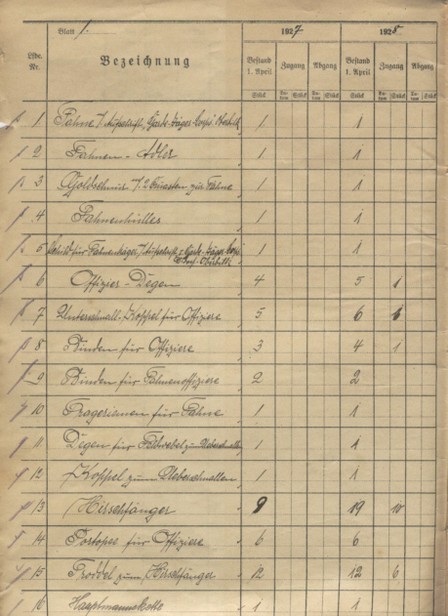 Blatt 1.
1927 1928
Lfde. Nr. Bezeichnung Bestand 1. April Zugang Abgang Bestand 1. April Zugang Abgang
Stück Stück Stück Stück Stück Stück
1 Fahne 1 1
2 Fahnen-Adler 1 1
3 Goldschnur 2 Quasten zur Fahne 1 1
4 Fahnenhülle 1 1
5 Schild für Fahnenträger 1 1
6 Offizier-Degen 4 5 1
7 Unterschnall-Koppel für Offiziere 5 6 6
8 Binden für Offiziere 3 4 1
9 Binden für Fahnenoffiziere 2 2
10 Trageriemen für Fahne 1 1
11 Degen für Feldwebel zum Ueberschnallen 1 1
12 Koppel zum Ueberschnallen 1 1
13 Hirschfänger 9 19 10
14 Portepee für Offiziere 6 6
15 Troddel zum Hirschfänger 12 12 6
16 Hauptmannskette 1 1